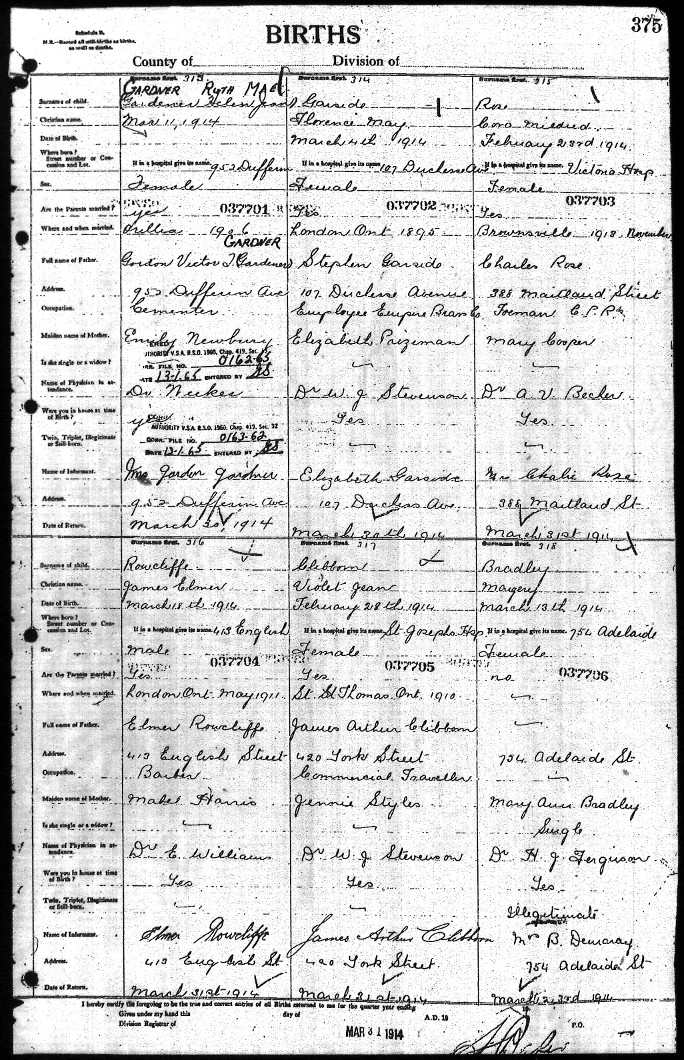 Schedule B.
N.B.—Record all still-births as births, as well as deaths.
BIRTHS
375
County of
Division of
Surname first. 313
Surname first. 314
Surname first. 315
GARDNER RUTH MAE
Surname of child. Gardener Helen Jean Garside Rose
Christian name. Mar 11, 1914 Florence May Cora Mildred
Date of Birth. March 4th 1914 February 23rd 1914
Where born? Street number or Concession and Lot. If in a hospital give its name. 952 Dufferin If in a hospital give its name. 107 Duchess Ave If in a hospital give its name. Victoria Hosp
Sex. Female Female Female
037701 037702 037703
Are the Parents married? yes Yes Yes
Where and when married. 1906 London Ont 1895 Brownsville 1913 November
GARDNER
Full name of Father. Gordon Victor T. Gardener Stephen Garside Charles Rose
Address. 952 Dufferin Ave 107 Duchess Avenue 388 Maitland Street
Occupation. Cementer Employee Empire Brass Co Foreman C.P.R.
Maiden name of Mother. Emily Newbury Elizabeth Prizeman Mary Cooper
AUTHORITY V.S.A. R.S.O. 1960, Chap. 419, Sec.
Is she single or a widow?
FILE NO. 0162-65
DATE 13-1-65 ENTERED BY
Name of Physician in attendance. Dr W. J Stevenson Dr A V. Becher
Were you in house at time of Birth? Yes Yes
AUTHORITY V.S.A. R.S.O. 1960, Chap. 419, Sec. 32
CORR. FILE NO. 0163-62
Twin, Triplet, Illegitimate or Still-born.
DATE 13-1-65 ENTERED BY
Name of Informant. Mrs Gordon Gardner Elizabeth Garside Mrs Charlie Rose
Address. 952 Dufferin Ave 107 Duchess Ave. 388 Maitland St
Date of Return. March 30, 1914 March 30th 1914 March 31st 1914
Surname first. 316 Surname first. 317 Surname first. 318
Surname of child. Rowcliffe Clibborn Bradley
Christian name. James Elmer Violet Jean Margery
Date of Birth. March 18th 1914 February 28th 1914 March 13th 1914
Where born? Street number or Concession and Lot. If in a hospital give its name. 413 English If in a hospital give its name. St Josephs Hosp If in a hospital give its name. 754 Adelaide
Sex. Male Female Female
037704 037705 037706
Are the Parents married? Yes Yes no
Where and when married. London Ont. May 1911 St. Thomas Ont. 1910
Full name of Father. Elmer Rowcliffe James Arthur Clibborn
Address. 413 English Street 420 York Street 754 Adelaide St
Occupation. Barber Commercial Traveller
Maiden name of Mother. Mabel Harris Jennie Styles Mary Ann Bradley
Is she single or a widow? Single
Name of Physician in attendance. Dr E. Williams Dr W J Stevenson Dr H. J Ferguson
Were you in house at time of Birth? Yes Yes Yes
Twin, Triplet, Illegitimate or Still-born. Illegitimate
Name of Informant. Elmer Rowcliffe James Arthur Clibborn Mrs B. Demaray
Address. 413 English St 420 York Street. 754 Adelaide St
Date of Return. March 31st 1914 March 31st 1914 March 23rd 1914
I hereby certify the foregoing to be the true and correct entries of all Births returned to me for the quarter year ending 19
Given under my hand this day of A.D. 19
Division Registrar of P.O.
MAR 31 1914